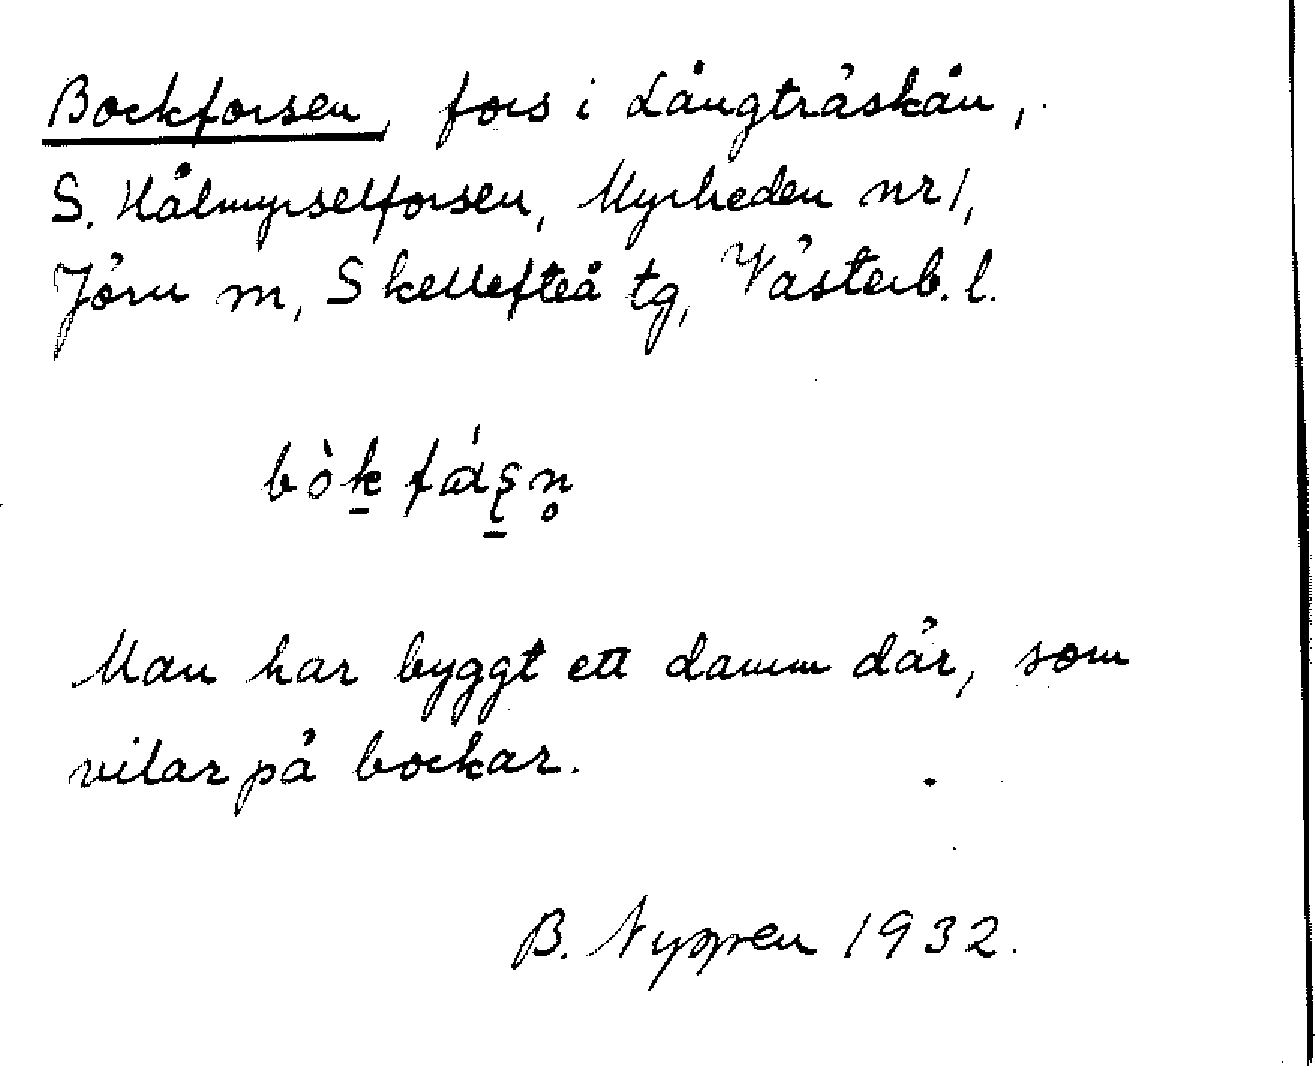 Bockforsen, fors i Långträskån,
S. Hålmyrselforsen, Myrheden nr 1,
Jörn sn, Skellefteå tg, Västerb. l.
bòk fáʂn̥
Man har byggt ett damm där, som
vilar på bockar.
B. 1932.